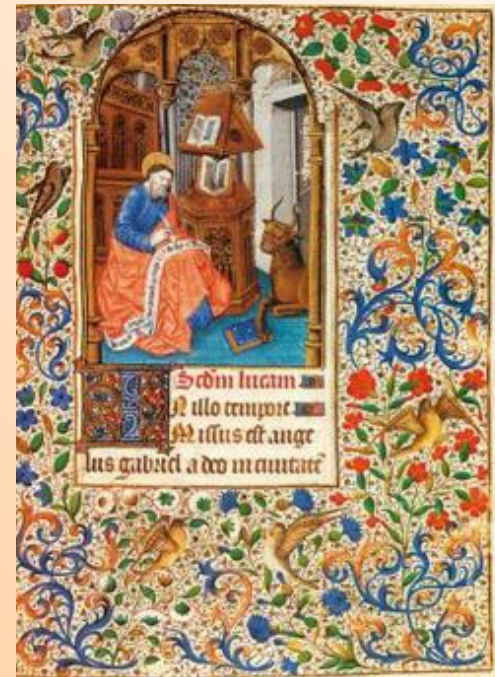 Scdm lucam
IN illo tempore
Missus est ange
lus gabriel a deo in ciuitate